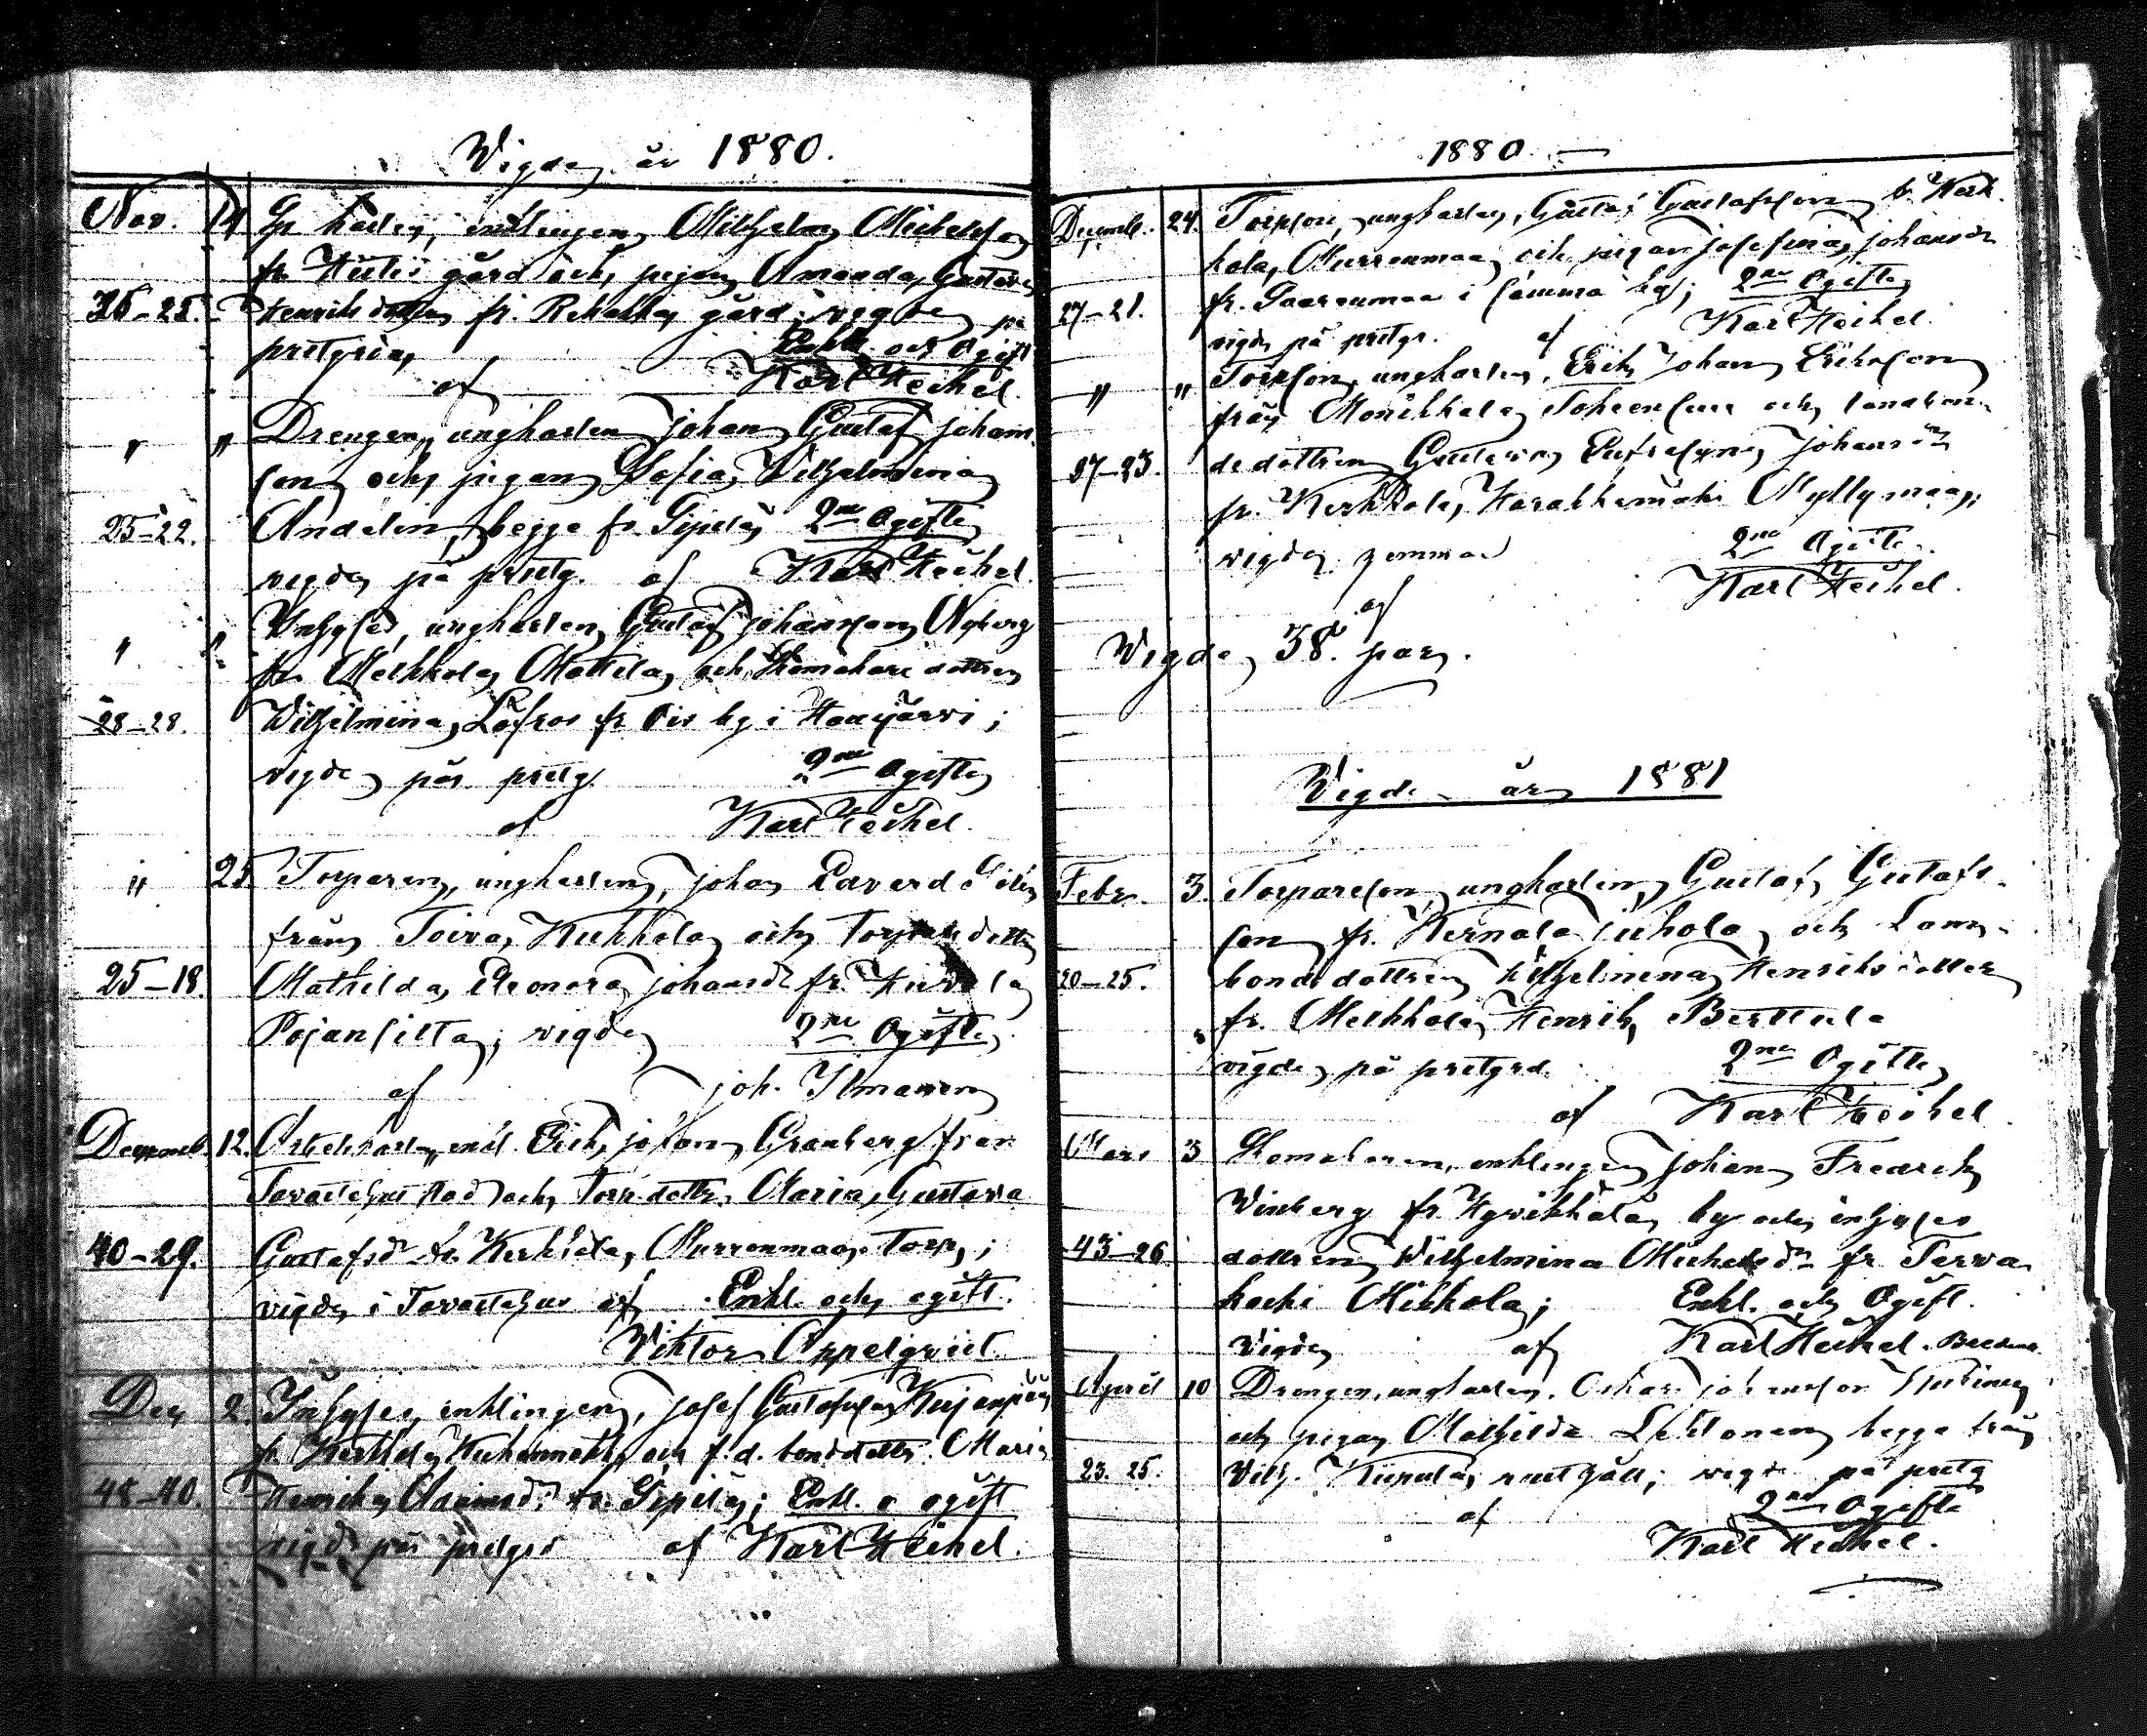 Vigde år 1880.
Nov. 14 enklingen Vilhelm Michelsson
fr. gård och pigan Amanda Gustava
36-25. Henriksdotter fr. Rekola gård; vigde på
prstgrden Enkl. och Ogift
af Karl Heikel.
" " Drengen, ungkarlen Johan Gustaf Johans-
son och pigan Sofia Vilhelmina
25-22. Andelin, begge fr. Sipilä 2ne Ogifte
vigde på prstg. af Karl Heikel.
" " Inhyses, ungkarlen Gustaf Johansson Nyberg
fr. Melkkola Mattila, och Skomakare dottren
28-28. Vilhelmina Löfros fr. Ois by i Hausjärvi;
vigde på prstg. 2ne Ogifte
af Karl Heikel.
" 25. Torparen, ungkarlen, Johan Edvard
från Toivo, Kukkola och Torpare dottren
25-18. Mathilda Eleonora Johansdr fr.
Pojansilta; vigde 2ne Ogifte
af Joh. Ilmanen
Decemb. 12. Arbetskarlen, enkl. Erik Johan Granberg från
Tavastehus stad och Torp.dottr. Maria Gustava
40-29. Gustafsdr fr. Kerkkola, Murronmaa Torp;
vigde i Tavastehus af Enkl. och ogift.
Viktor Appelqvist.
Dec 2. Inhyses, enklingen, Josef Gustafsson Kujanpää
fr. Kerkkola och f.d. bondedottr. Maria
48-40. Henrika fr. Sipilä; Enkl. o ogift
vigde på prstgrd af Karl Heikel.
1880.
Decemb. 24. Torpson, ungkarlen, Gustaf Gustafsson fr. Kerk-
kola, Murronmaa och pigan Josefina Johansdr
27-21. fr. Saarenmaa i samma by; 2ne Ogifte
vigde på prstgr. af Karl Heikel.
" " Torpson, ungkarlen, Erik Johan Eriksson
från Monikkala och landbon-
37-23. dedottren Gustava Eufrosyne Johansdr
fr. Kerkkola, Harakkamäki Myllymaa;
vigde hemma 2ne Ogifte
af Karl Heikel.
Vigde 38. par.
Vigde år 1881
Febr. 3. Torpareson, ungkarlen Gustaf Gustafs-
son fr. Kernala Juhola, och Land-
20-25. bondedottren Vilhelmina Henriksdotter
fr. Melkkola, Henrik Berttula
vigde på prstgrd. 2ne Ogifte
af Karl Heikel.
Mars 3 Skomakaren, enklingen Johan Fredrik
Vinberg fr. Hyvikkälä by och inhyses
43-26 dottren Vilhelmina Michelsdr fr. Terva-
koski Mikkola; Enkl. och Ogift.
Vigde af Karl Heikel.
April 10 Drengen, ungkarlen, Oskar Johansson
och pigan Mathilda Lehtonen begge från
23. 25. vigde på prstg
af 2ne Ogifte
Karl Heikel.